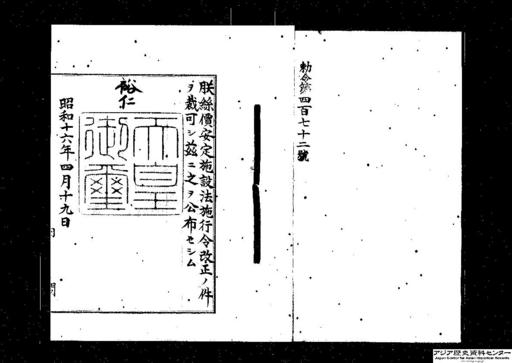 勅令第四百七十二號
朕絲價安定施設法施行令改正ノ件
ヲ裁可シ茲ニ之ヲ公布セシム
裕仁
天皇御璽
昭和十六年四月十九日
アジア歴史資料センター
Japan Center for Asian Historical Records